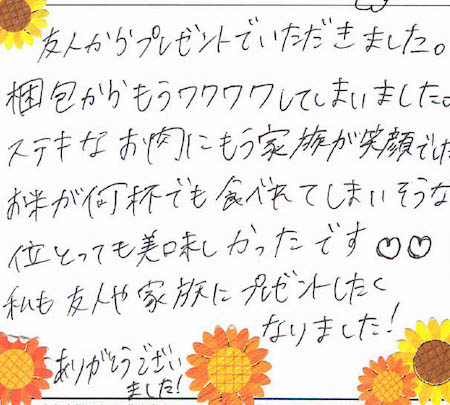 友人からプレゼントでいただきました。
梱包からもうワクワクしてしまいました。
ステキなお肉にもう家族が笑顔でした
お米が何杯でも食べれてしまいそうな
位とっても美味しかったです♡♡
私も友人や家族にプレゼントしたく
なりました!
ありがとうござい
ました!